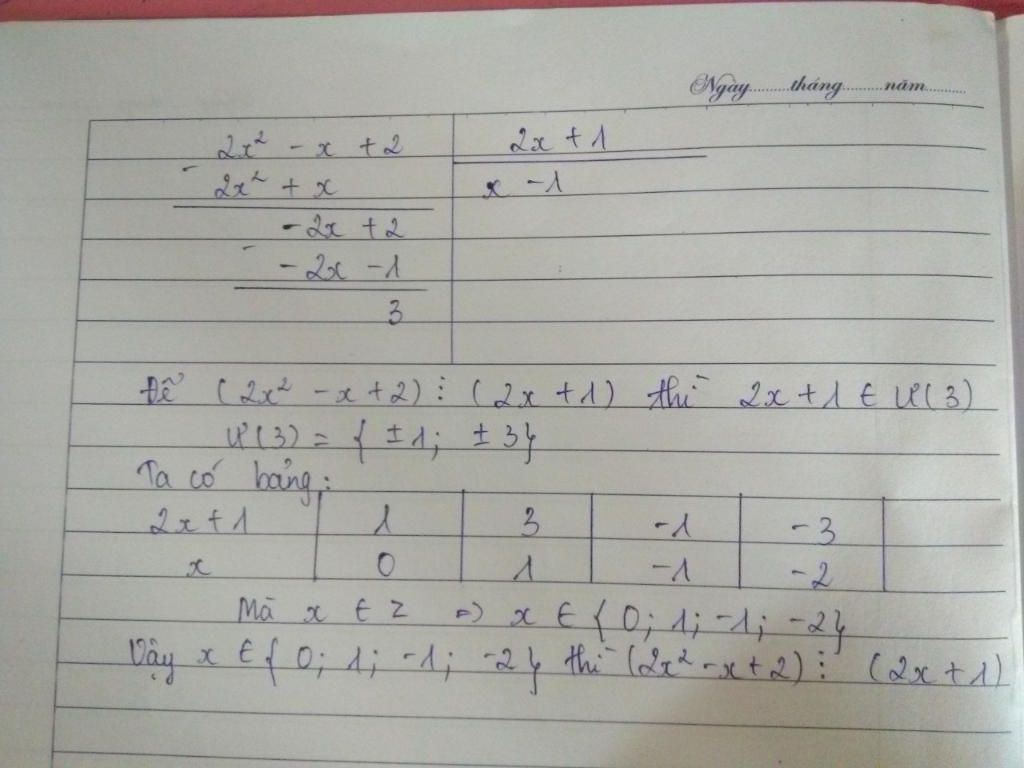 Ngày..........tháng..........năm..........
2x² - x + 2 | 2x + 1
- 2x² + x | x - 1
- 2x + 2
- - 2x - 1
3
Để (2x² - x + 2) ⋮ (2x + 1) thì 2x + 1 ∈ Ư(3)
Ư(3) = { ±1; ±3}
Ta có bảng:
2x + 1 | 1 | 3 | -1 | -3
x | 0 | 1 | -1 | -2
Mà x ∈ Z => x ∈ { 0; 1; -1; -2}
Vậy x ∈ { 0; 1; -1; -2} thì (2x² - x + 2) ⋮ (2x + 1)